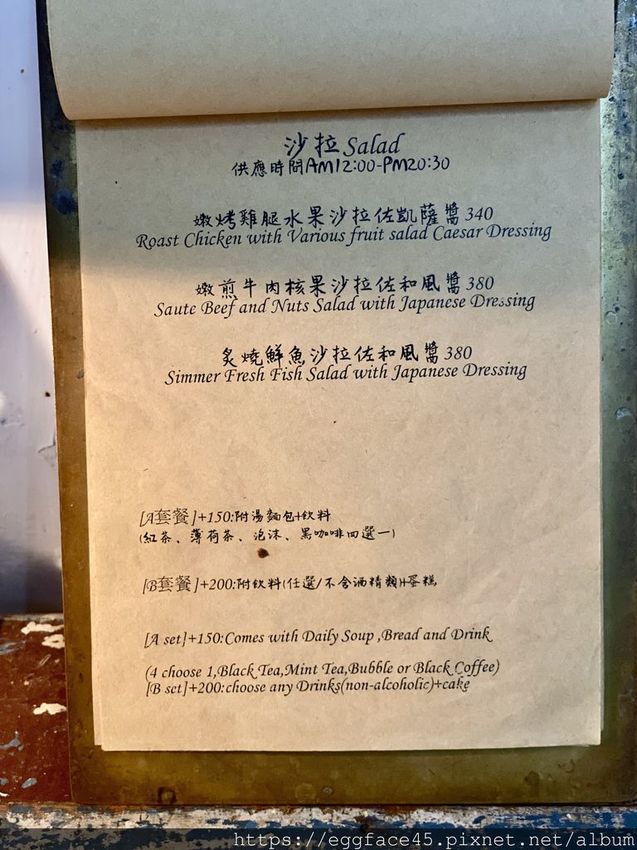 沙拉 Salad
供應時間AM12:00-PM20:30
嫩烤雞腿水果沙拉佐凱薩醬 340
Roast Chicken with Various fruit salad Caesar Dressing
嫩煎牛肉核果沙拉佐和風醬 380
Saute Beef and Nuts Salad with Japanese Dressing
炙燒鮮魚沙拉佐和風醬 380
Simmer Fresh Fish Salad with Japanese Dressing
[A套餐]+150:附湯麵包+飲料
(紅茶、薄荷茶、泡沫、黑咖啡四選一)
[B套餐]+200:附飲料(任選/不含酒精類)+蛋糕
[A set]+150:Comes with Daily Soup ,Bread and Drink
(4 choose 1,Black Tea,Mint Tea,Bubble or Black Coffee)
[B sct]+200:choose any Drinks(non-alcoholic)+cake
https://eggface45.pixnet.net/album